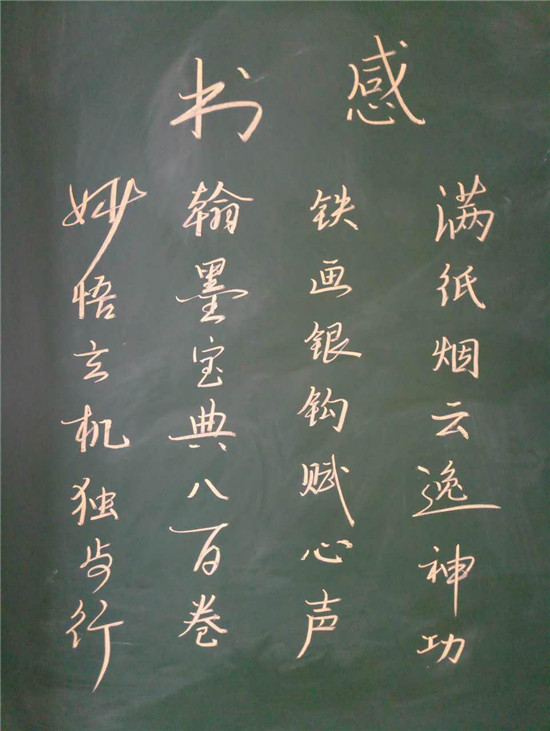 书感
满纸烟云逸神功
铁画银钩赋心声
翰墨宝典八百卷
妙悟玄机独步行